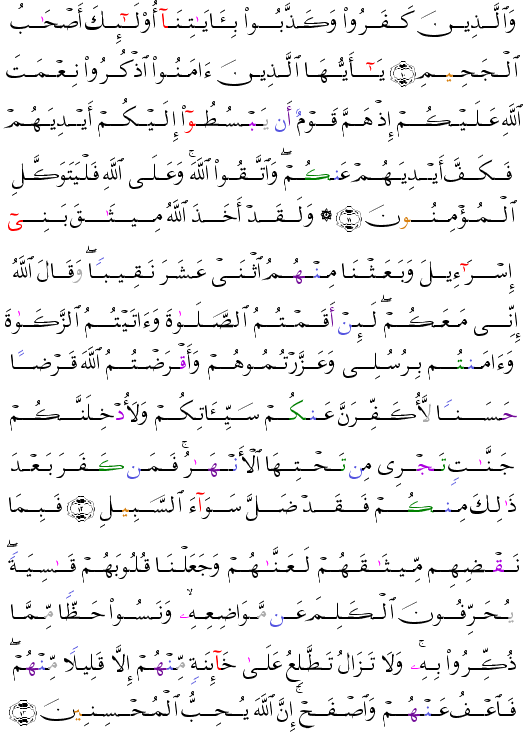 وَٱلَّذِينَ كَفَرُوا۟ وَكَذَّبُوا۟ بِـَٔايَـٰتِنَآ أُو۟لَـٰٓئِكَ أَصْحَـٰبُ
ٱلْجَحِيمِ ١٠ يَـٰٓأَيُّهَا ٱلَّذِينَ ءَامَنُوا۟ ٱذْكُرُوا۟ نِعْمَتَ
ٱللَّهِ عَلَيْكُمْ إِذْ هَمَّ قَوْمٌ أَن يَبْسُطُوٓا۟ إِلَيْكُمْ أَيْدِيَهُمْ
فَكَفَّ أَيْدِيَهُمْ عَنكُمْ ۖ وَٱتَّقُوا۟ ٱللَّهَ ۚ وَعَلَى ٱللَّهِ فَلْيَتَوَكَّلِ
ٱلْمُؤْمِنُونَ ١١ ۞ وَلَقَدْ أَخَذَ ٱللَّهُ مِيثَـٰقَ بَنِىٓ
إِسْرَٰٓءِيلَ وَبَعَثْنَا مِنْهُمُ ٱثْنَىْ عَشَرَ نَقِيبًا ۖ وَقَالَ ٱللَّهُ
إِنِّى مَعَكُمْ ۖ لَئِنْ أَقَمْتُمُ ٱلصَّلَوٰةَ وَءَاتَيْتُمُ ٱلزَّكَوٰةَ
وَءَامَنتُم بِرُسُلِى وَعَزَّرْتُمُوهُمْ وَأَقْرَضْتُمُ ٱللَّهَ قَرْضًا
حَسَنًا لَّأُكَفِّرَنَّ عَنكُمْ سَيِّـَٔاتِكُمْ وَلَأُدْخِلَنَّكُمْ
جَنَّـٰتٍ تَجْرِى مِن تَحْتِهَا ٱلْأَنْهَـٰرُ ۚ فَمَن كَفَرَ بَعْدَ
ذَٰلِكَ مِنكُمْ فَقَدْ ضَلَّ سَوَآءَ ٱلسَّبِيلِ ١٢ فَبِمَا
نَقْضِهِم مِّيثَـٰقَهُمْ لَعَنَّـٰهُمْ وَجَعَلْنَا قُلُوبَهُمْ قَـٰسِيَةً ۖ
يُحَرِّفُونَ ٱلْكَلِمَ عَن مَّوَاضِعِهِۦ ۙ وَنَسُوا۟ حَظًّا مِّمَّا
ذُكِّرُوا۟ بِهِۦ ۚ وَلَا تَزَالُ تَطَّلِعُ عَلَىٰ خَآئِنَةٍ مِّنْهُمْ إِلَّا قَلِيلًا مِّنْهُمْ ۖ
فَٱعْفُ عَنْهُمْ وَٱصْفَحْ ۚ إِنَّ ٱللَّهَ يُحِبُّ ٱلْمُحْسِنِينَ ١٣